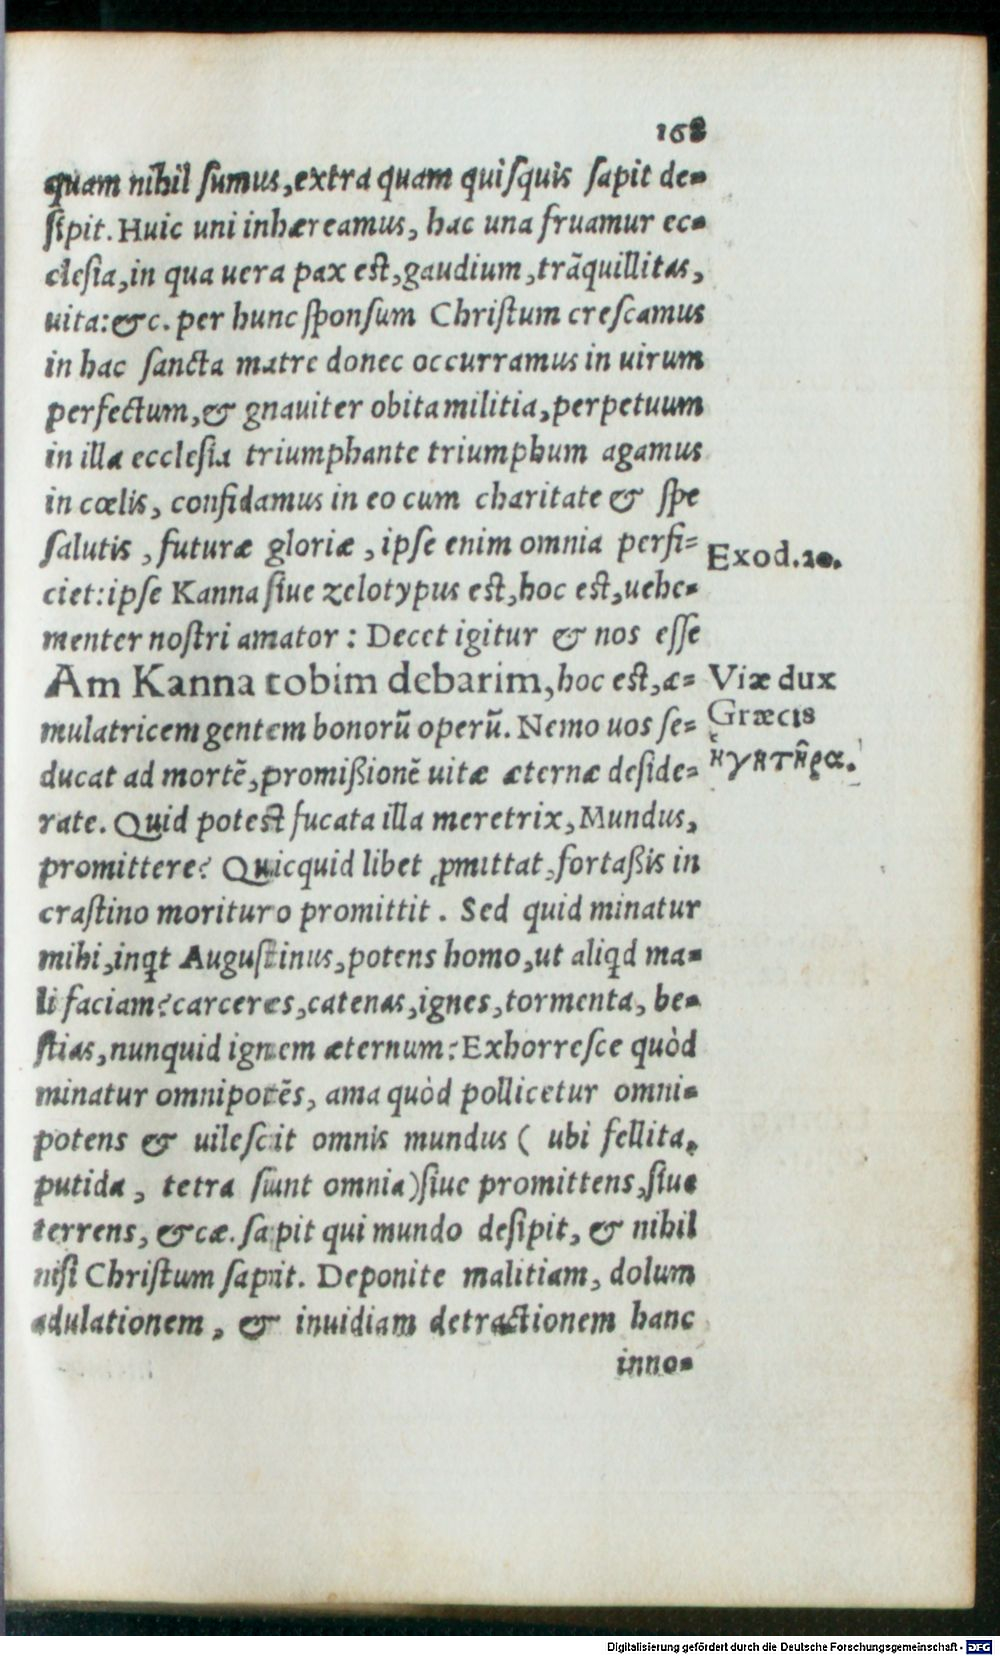 168
quam nihil ſumus, extra quam quiſquis ſapit de-
ſipit. Huic uni inhæreamus, hac una fruamur ec-
cleſia, in qua uera pax eſt, gaudium, trãquillitas,
uita: &c. per hunc ſponſum Chriſtum creſcamus
in hac ſancta matre donec occurramus in uirum
perfectum, & gnauiter obita militia, perpetuum
in illa eccleſia triumphante triumphum agamus
in cœlis, confidamus in eo cum charitate & ſpe
ſalutis, futuræ gloriæ, ipſe enim omnia perfi-
Exod.20.
ciet: ipſe Kanna ſiue zelotypus eſt, hoc eſt, uehe-
menter noſtri amator: Decet igitur & nos eſſe
Am Kanna tobim debarim, hoc eſt, æ-
Viæ dux
mulatricem gentem bonorũ operũ. Nemo uos ſe-
Græcis
ducat ad mortẽ, promißionẽ uitæ æternæ deſide-
rate. Quid poteſt fucata illa meretrix, Mundus,
promittere? Quicquid libet ꝓmittat, fortaßis in
craſtino morituro promittit. Sed quid minatur
mihi, inqt Auguſtinus, potens homo, ut aliqd ma-
li faciam? carceres, catenas, ignes, tormenta, be-
ſtias, nunquid ignem æternum? Exhorreſce quòd
minatur omnipotẽs, ama quòd pollicetur omni-
potens & uileſcit omnis mundus ( ubi fellita,
putida, tetra ſunt omnia) ſiue promittens, ſiue
terrens, &cæ. ſapit qui mundo deſipit, & nihil
niſi Chriſtum ſapit. Deponite malitiam, dolum
adulationem, & inuidiam detractionem hanc
inno-
Digitalisierung gefördert durch die Deutsche Forschungsgemeinschaft - DFG